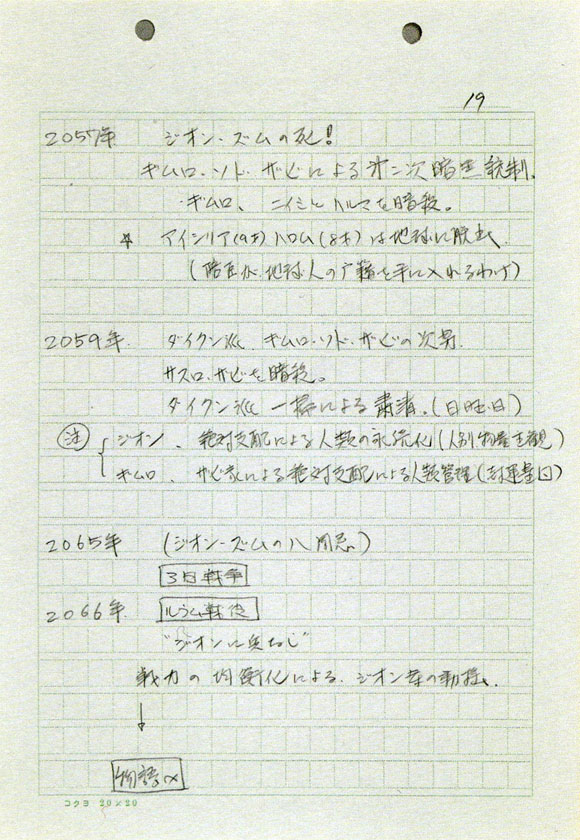 19
2057年 ジオン・ズムの死!
ギムロ・ソド・ザビによる 次暗黒統制.
ギムロ、 ハルマを暗殺。
☆ アインリア(9才) ハロム(8才)は地球に脱出.
( 地球人の戸籍を手に入れるわけ)
2059年. ダイクン派 ギムロ・ソド・ザビの次男.
サスロ・ザビを暗殺。
ダイクン派 一掃による粛清.(日曜日)
注 ジオン、絶対支配による人類の永続化(人)
ギムロ、ザビ家による絶対支配による人類管理
2065年 (ジオン・ズムの八周忌)
3日戦争
2066年 ルウム戦役
"ジオンに兵なし"
戦力の均衡化による、ジオン の動揺.
↓
物語へ
コクヨ 20×20